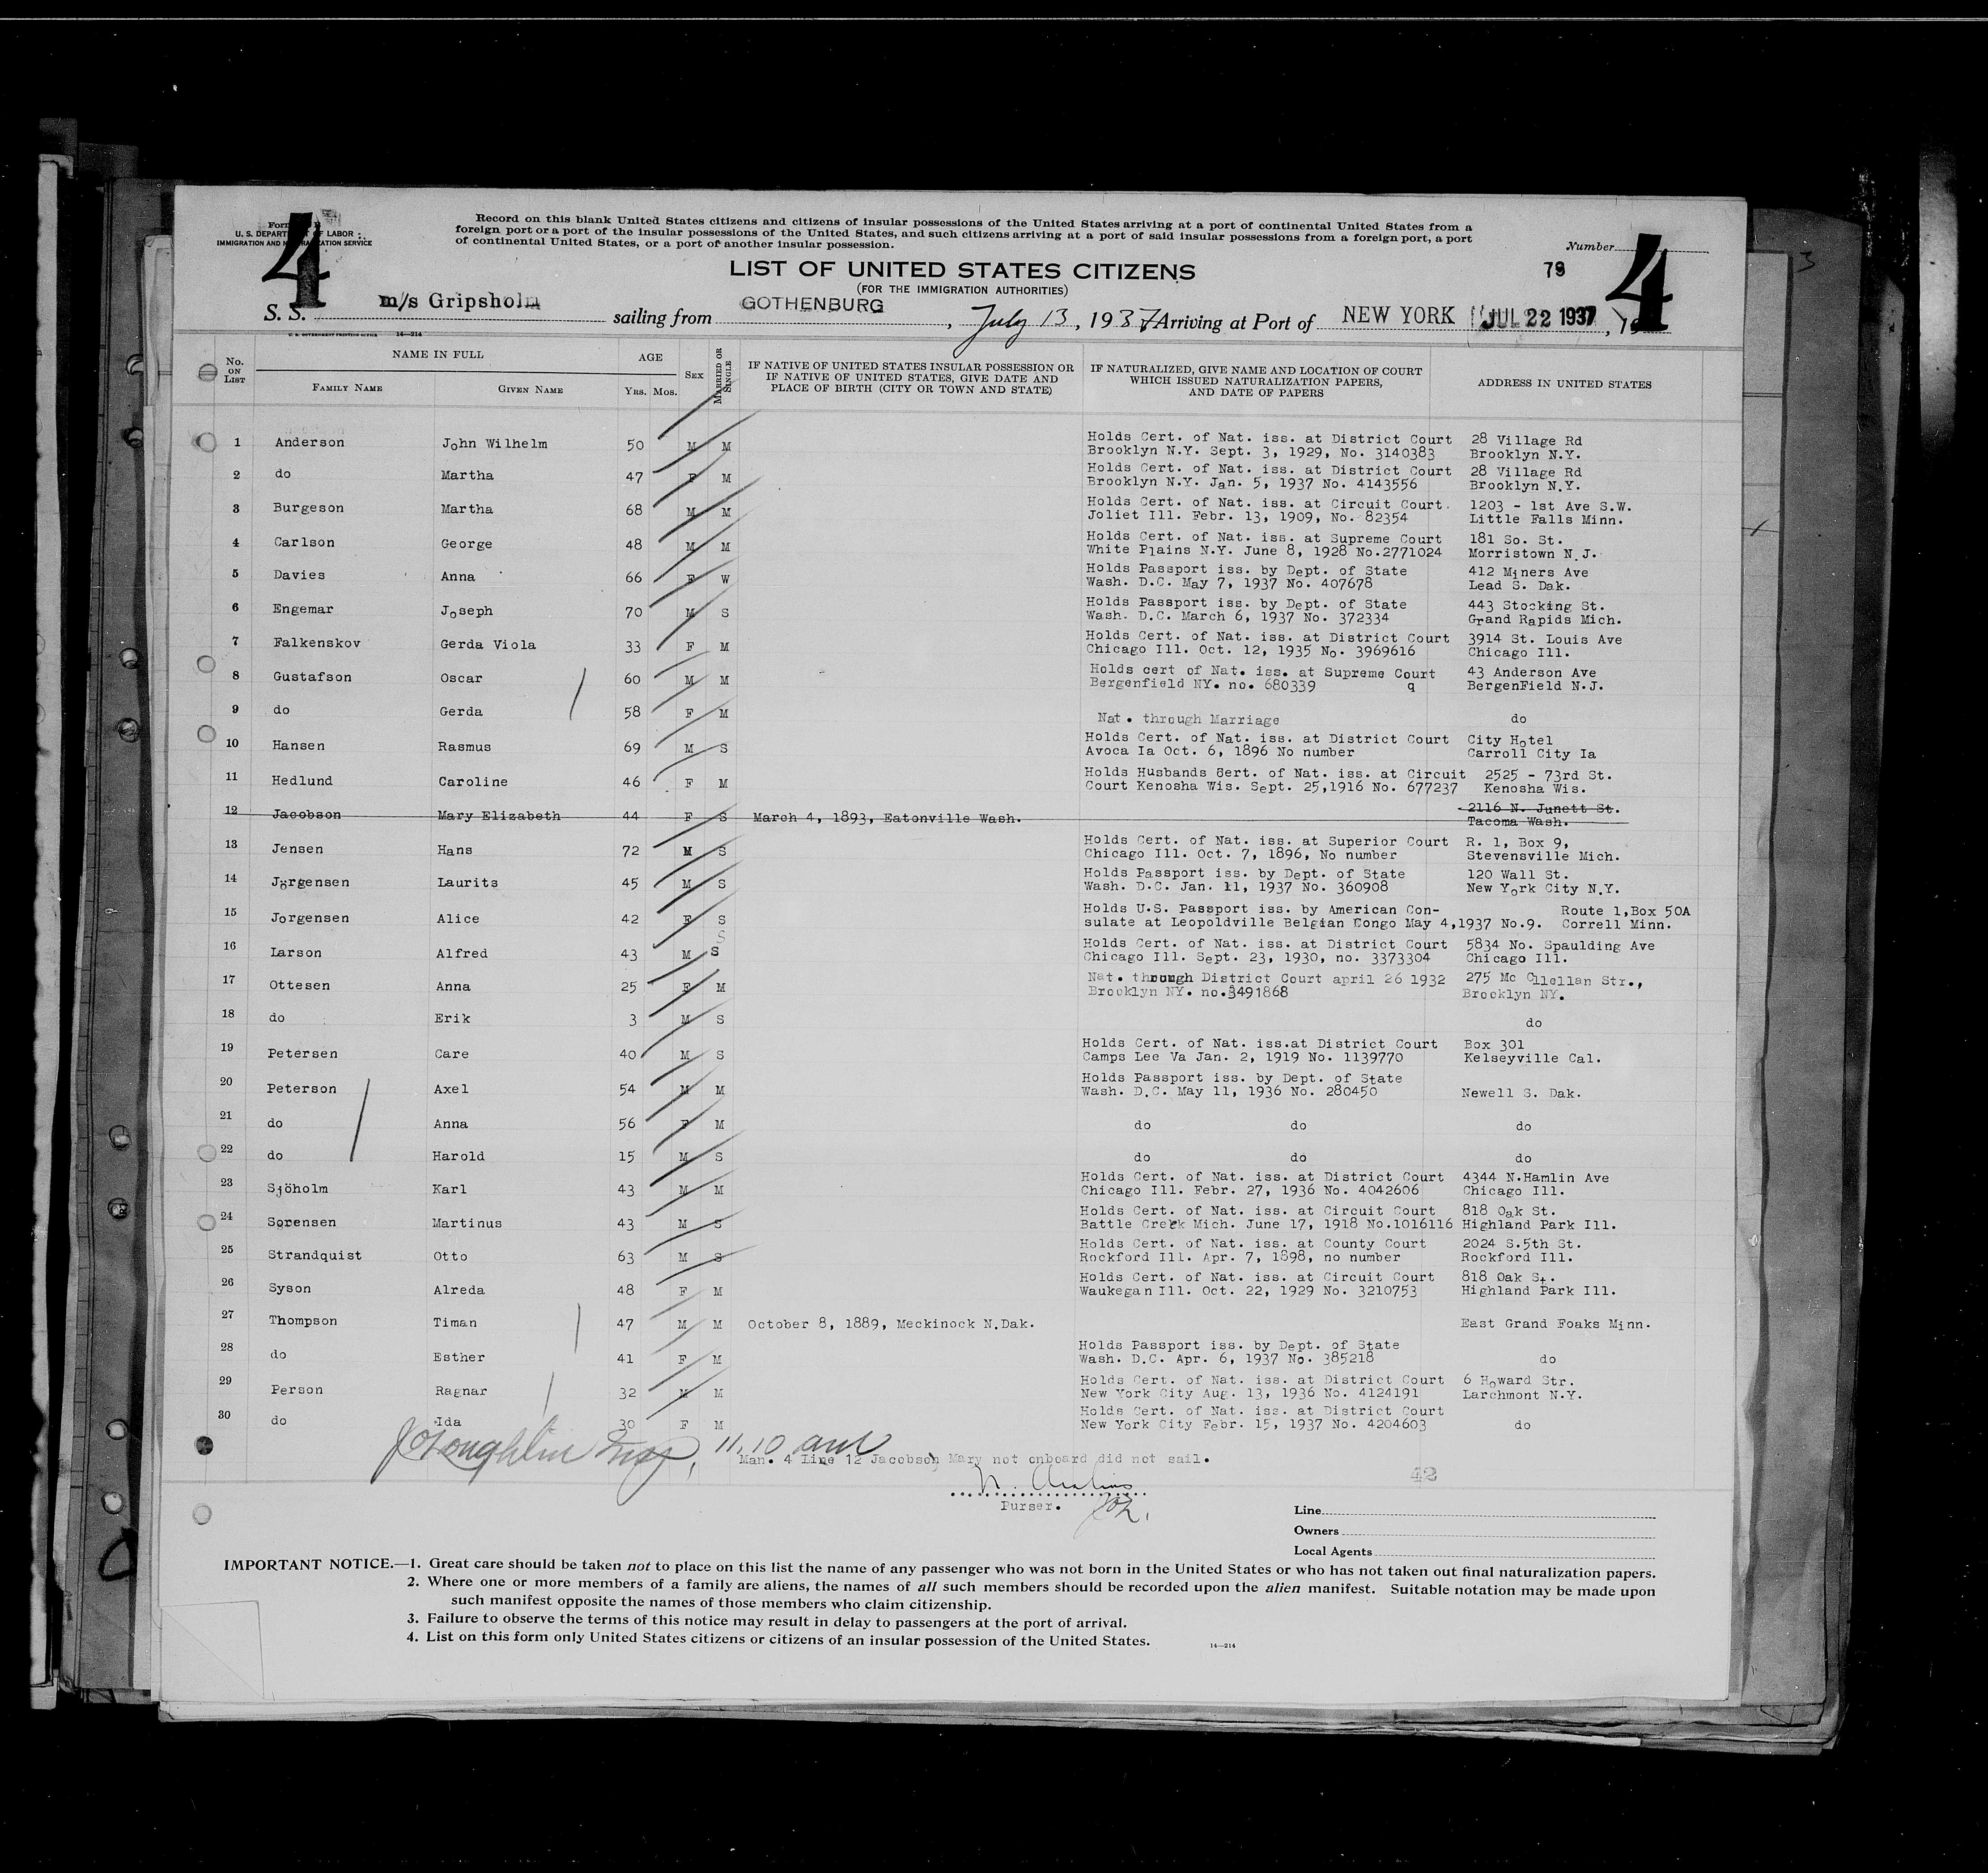 Record on this blank United States citizens and citizens of insular possessions of the United States arriving at a port of continental United States from a
foreign port or a port of the insular possessions of the United States, and such citizens arriving at a port of said insular possessions from a foreign port, a port
of continental United States, or a port of another insular possession.
U. S. DEPARTMENT OF LABOR
IMMIGRATION AND NATURALIZATION SERVICE
4
Number
4
LIST OF UNITED STATES CITIZENS
(FOR THE IMMIGRATION AUTHORITIES)
S. S. m/s Gripsholm sailing from GOTHENBURG, July 13, 1937 Arriving at Port of NEW YORK JUL 22 1937, 19
U. S. GOVERNMENT PRINTING OFFICE 14—214
No. ON LIST NAME IN FULL FAMILY NAME GIVEN NAME AGE YRS. MOS. SEX MARRIED OR SINGLE IF NATIVE OF UNITED STATES INSULAR POSSESSION OR IF NATIVE OF UNITED STATES, GIVE DATE AND PLACE OF BIRTH (CITY OR TOWN AND STATE) IF NATURALIZED, GIVE NAME AND LOCATION OF COURT WHICH ISSUED NATURALIZATION PAPERS, AND DATE OF PAPERS ADDRESS IN UNITED STATES
1 Anderson John Wilhelm 50 M M Holds Cert. of Nat. iss. at District Court 28 Village Rd
Brooklyn N.Y. Sept. 3, 1929, No. 3140383 Brooklyn N.Y.
2 do Martha 47 F M Holds Cert. of Nat. iss. at District Court 28 Village Rd
Brooklyn N.Y. Jan. 5, 1937 No. 4143556 Brooklyn N.Y.
3 Burgeson Martha 68 M M Holds Cert. of Nat. iss. at Circuit Court. 1203 - 1st Ave S.W.
Joliet Ill. Febr. 13, 1909, No. 82354 Little Falls Minn.
4 Carlson George 48 M M Holds Cert. of Nat. iss. at Supreme Court 181 So. St.
White Plains N.Y. June 8, 1928 No.2771024 Morristown N.J.
5 Davies Anna 66 F W Holds Passport iss. by Dept. of State 412 Miners Ave
Wash. D.C. May 7, 1937 No. 407678 Lead S. Dak.
6 Engemar Joseph 70 M S Holds Passport iss. by Dept. of State 443 Stocking St.
Wash. D.C. March 6, 1937 No. 372334 Grand Rapids Mich.
7 Falkenskov Gerda Viola 33 F M Holds Cert. of Nat. iss. at District Court 3914 St. Louis Ave
Chicago Ill. Oct. 12, 1935 No. 3969616 Chicago Ill.
8 Gustafson Oscar 60 M M Holds cert of Nat. iss. at Supreme Court 43 Anderson Ave
Bergenfield NY. no. 680339 q BergenField N.J.
9 do Gerda 58 F M Nat. through Marriage do
10 Hansen Rasmus 69 M S Holds Cert. of Nat. iss. at District Court City Hotel
Avoca Ia Oct. 6, 1896 No number Carroll City Ia
11 Hedlund Caroline 46 F M Holds Husbands Cert. of Nat. iss. at Circuit 2525 - 73rd St.
Court Kenosha Wis. Sept. 25,1916 No. 677237 Kenosha Wis.
12 Jacobson Mary Elizabeth 44 F S March 4, 1893, Eatonville Wash. 2116 N. Junett St.
Tacoma Wash.
13 Jensen Hans 72 M S Holds Cert. of Nat. iss. at Superior Court R. 1, Box 9,
Chicago Ill. Oct. 7, 1896, No number Stevensville Mich.
14 Jörgensen Laurits 45 M S Holds Passport iss. by Dept. of State 120 Wall St.
Wash. D.C. Jan. 11, 1937 No. 360908 New York City N.Y.
15 Jorgensen Alice 42 F S Holds U.S. Passport iss. by American Con- Route 1,Box 50A
sulate at Leopoldville Belgian Congo May 4,1937 No.9. Correll Minn.
16 Larson Alfred 43 M S Holds Cert. of Nat. iss. at District Court 5834 No. Spaulding Ave
Chicago Ill. Sept. 23, 1930, no. 3373304 Chicago Ill.
17 Ottesen Anna 25 F M Nat. through District Court april 26 1932 275 Mc Cllellan Str.,
Brooklyn NY. no.3491868 Brooklyn NY.
18 do Erik 3 M S do
19 Petersen Care 40 M S Holds Cert. of Nat. iss.at District Court Box 301
Camps Lee Va Jan. 2, 1919 No. 1139770 Kelseyville Cal.
20 Peterson Axel 54 M M Holds Passport iss. by Dept. of State
Wash. D.C. May 11, 1936 No. 280450 Newell S. Dak.
21 do Anna 56 F M do do do
22 do Harold 15 M S do do do
23 Sjöholm Karl 43 M M Holds Cert. of Nat. iss. at District Court 4344 N.Hamlin Ave
Chicago Ill. Febr. 27, 1936 No. 4042606 Chicago Ill.
24 Sorensen Martinus 43 M S Holds Cert. of Nat. iss. at Circuit Court 818 Oak St.
Battle Creek Mich. June 17, 1918 No.1016116 Highland Park Ill.
25 Strandquist Otto 63 M S Holds Cert. of Nat. iss. at County Court 2024 S.5th St.
Rockford Ill. Apr. 7, 1898, no number Rockford Ill.
26 Syson Alreda 48 F M Holds Cert. of Nat. iss. at Circuit Court 818 Oak St.
Waukegan Ill. Oct. 22, 1929 No. 3210753 Highland Park Ill.
27 Thompson Timan 47 M M October 8, 1889, Meckinock N.Dak. East Grand Foaks Minn.
28 do Esther 41 F M Holds Passport iss. by Dept. of State
Wash. D.C. Apr. 6, 1937 No. 385218 do
29 Person Ragnar 32 M M Holds Cert. of Nat. iss. at District Court 6 Howard Str.
New York City Aug. 13, 1936 No. 4124191 Larchmont N.Y.
30 do Ida 30 F M Holds Cert. of Nat. iss. at District Court
New York City Febr. 15, 1937 No. 4204603 do
11.10 am
Man. 4 Line 12 Jacobson Mary not onboard did not sail.
42
Purser.
Line
Owners
Local Agents
IMPORTANT NOTICE.—1. Great care should be taken not to place on this list the name of any passenger who was not born in the United States or who has not taken out final naturalization papers.
2. Where one or more members of a family are aliens, the names of all such members should be recorded upon the alien manifest. Suitable notation may be made upon
such manifest opposite the names of those members who claim citizenship.
3. Failure to observe the terms of this notice may result in delay to passengers at the port of arrival.
4. List on this form only United States citizens or citizens of an insular possession of the United States.
14—214